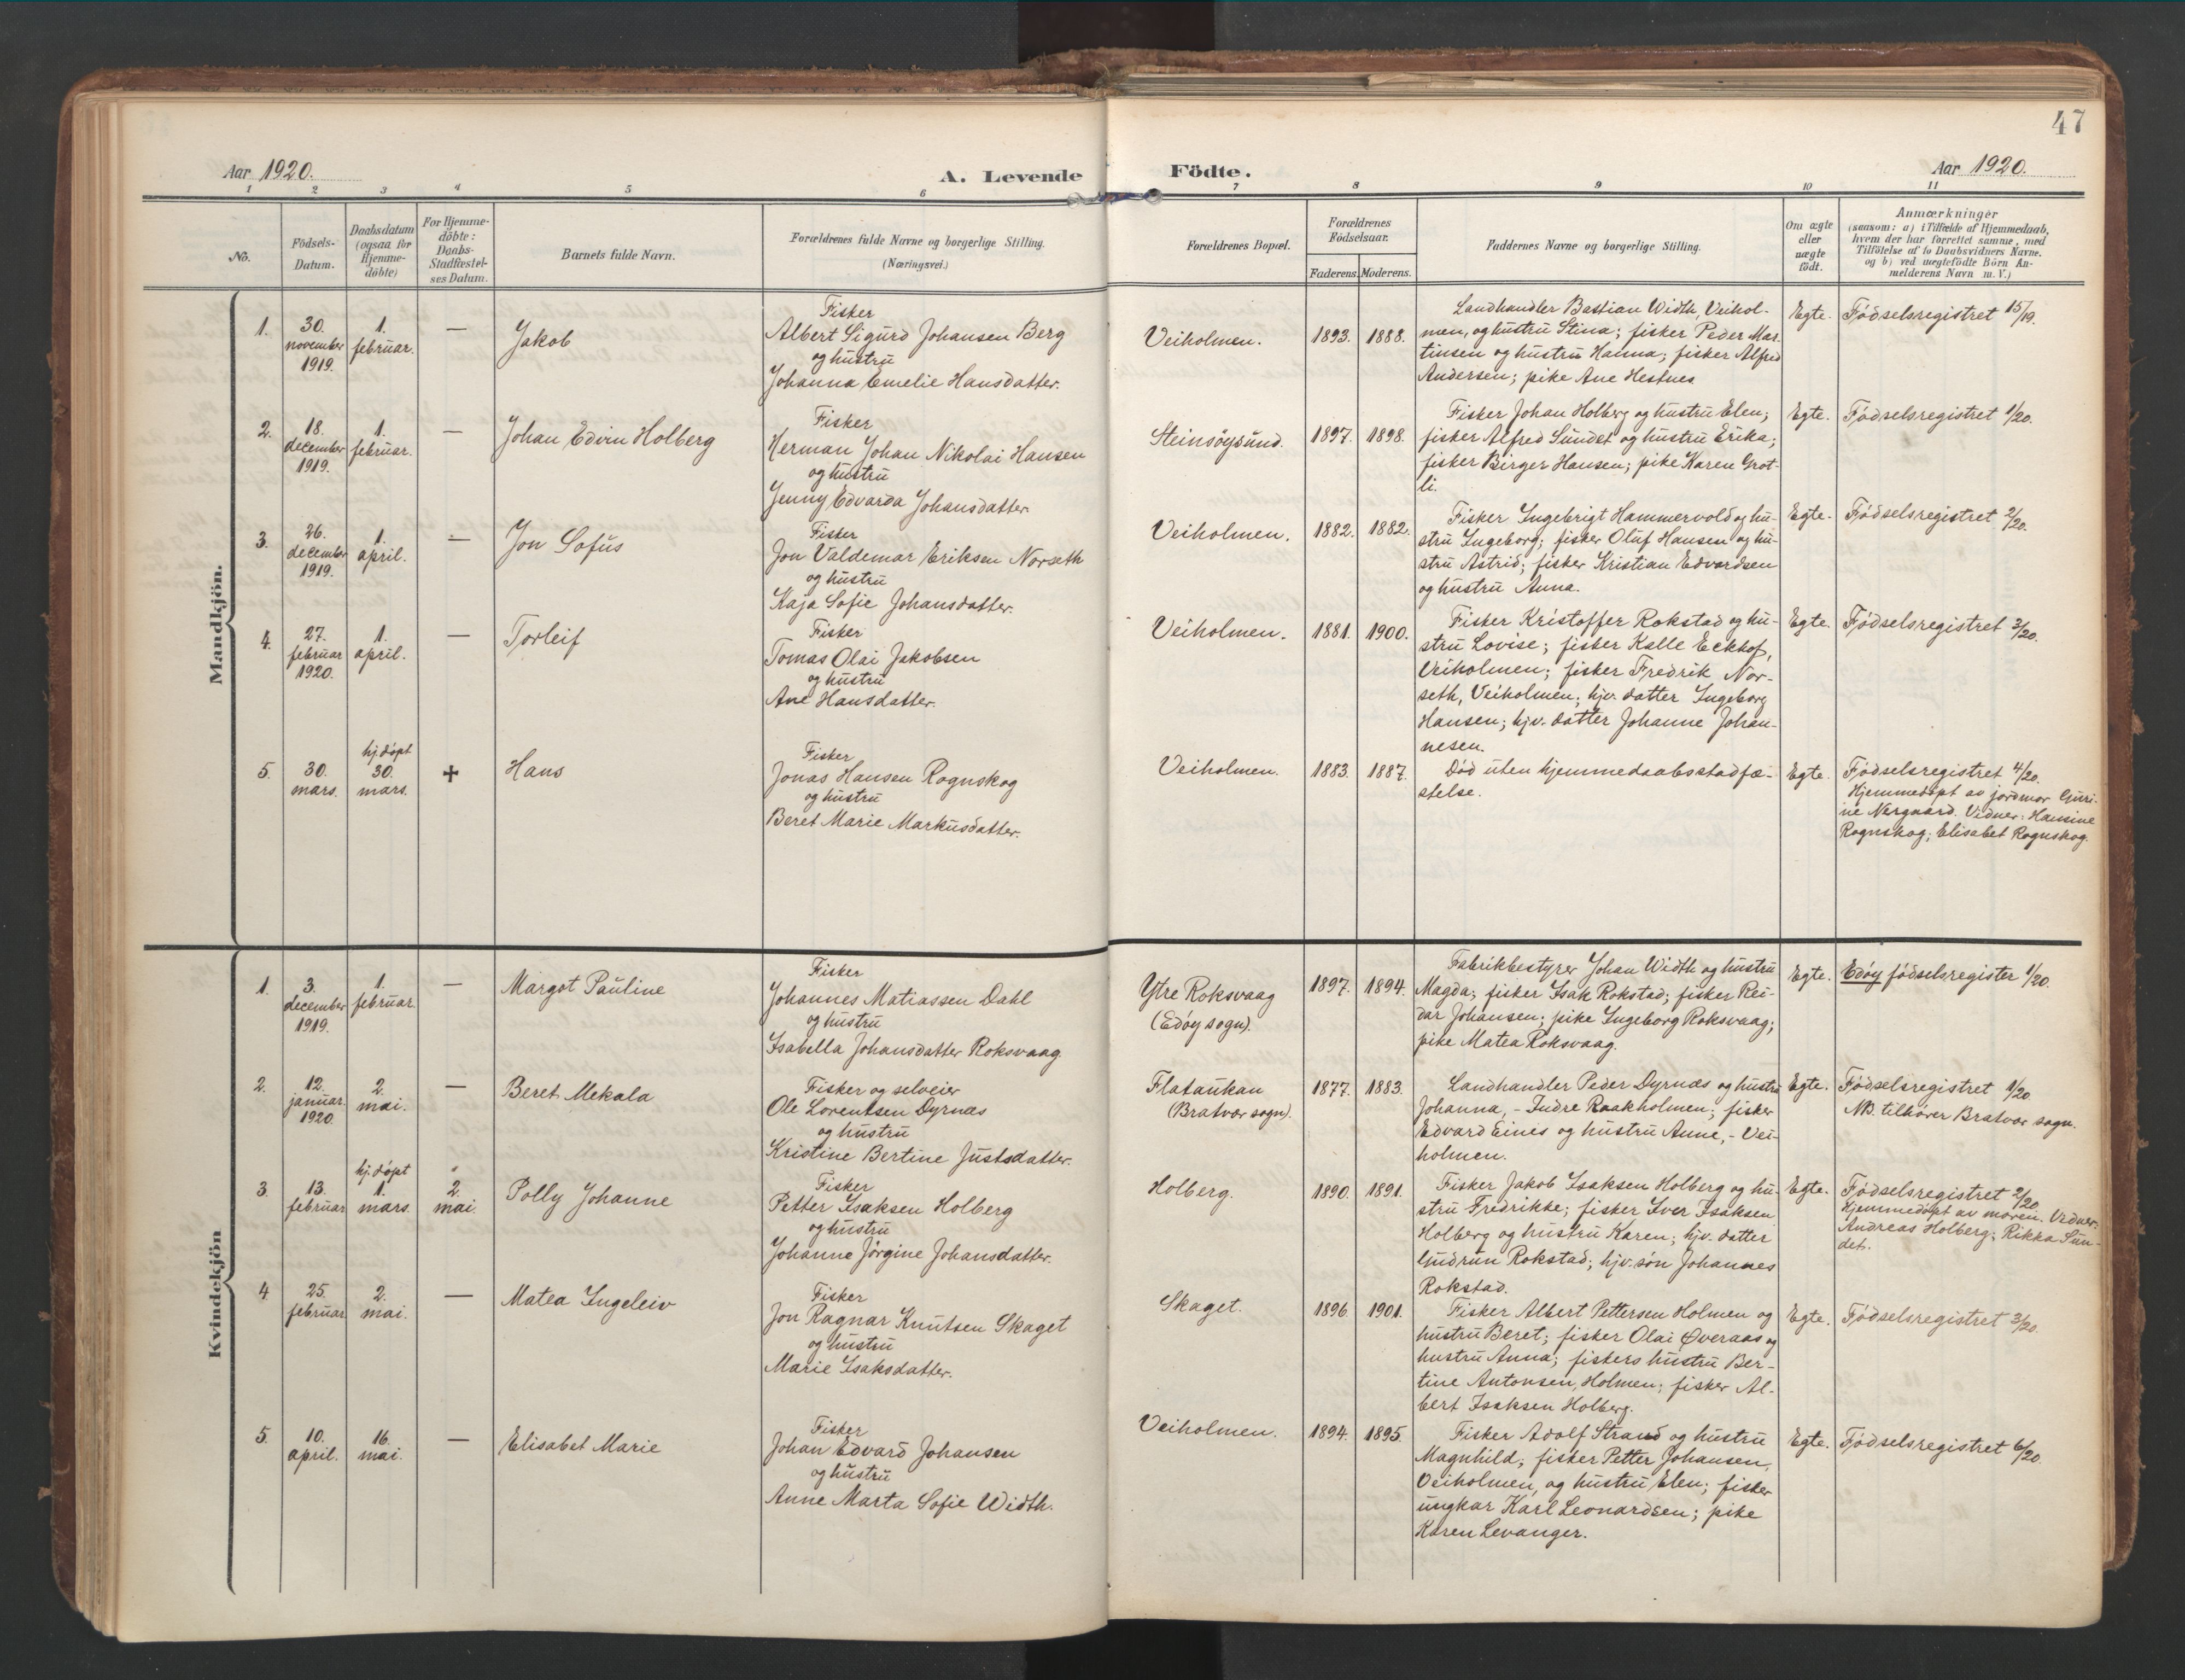 47
Aar 1920.
A. Levende
Födte.
Aar 1920.
1 2 3 4 5 6 7 8 9 10 11
No.
Födsels-
Datum.
Daabsdatum
(ogsaa for
Hjemme-
döbte)
For Hjemme-
döbte:
Daabs-
Stadfæstel-
ses Datum.
Barnets fulde Navn.
Forældrenes fulde Navne og borgerlige Stilling.
(Næringsvei.)
Forældrenes Bopæl.
Forældrenes
Födselsaar.
Faderens. Moderens.
Faddernes Navne og borgerlige Stilling.
Om ægte
eller
uægte
födt.
Anmærkninger
(saasom: a) i Tilfælde af Hjemmedaab,
hvem der har forrettet samme, med
Tilföielse af to Daabsvidners Navne.
og b) ved uægtefödte Börn An-
melderens Navn m. V.)
Mandkjön.
1.
30.
november
1919.
1.
februar.
—
Jakob
Fisker
Albert Sigurd Johansen Berg
og hustru
Johanna Emelie Hansdatter.
Veiholmen.
1893.
1888.
Landhandler Bastian Width, Veihol-
men, og hustru Stina; fisker Peder Mar-
tinsen og hustru Hanna; fisker Alfred
Andersen; pike Ane Hestnes
Egte.
Fødselsregistret 15/19.
2.
18.
december
1919.
1.
februar.
—
Johan Edvin Holberg
Fisker
Herman Johan Nikolai Hansen
og hustru
Jenny Edvarda Johansdatter
Steinsøysund.
1897.
1898.
Fisker Johan Holberg og hustru Elen;
fisker Alfred Sundet og hustru Erika;
fisker Birger Hansen; pike Karen Grot-
li.
Egte.
Fødselsregistret 1/20.
3.
26.
december
1919.
1.
april.
—
Jon Sofus
Fisker
Jon Valdemar Eriksen Norseth
og hustru
Kaja Sofie Johansdatter.
Veiholmen.
1882.
1882.
Fisker Ingebrigt Hammervold og hu-
stru Ingeborg; fisker Oluf Hansen og hu-
stru Astrid; fisker Kristian Edvardsen
og hustru Anna.
Egte.
Fødselsregistret 2/20.
4.
27.
februar
1920.
1.
april.
—
Torleif
Fisker
Tomas Olai Jakobsen
og hustru
Ane Hansdatter.
Veiholmen.
1881.
1900.
Fisker Kristoffer Rokstad og hu-
stru Lovise; fisker Kalle Eckhof,
Veiholmen; fisker Fredrik Nor-
seth, Veiholmen; hjv. datter Ingeborg
Hansen; hjv. datter Johanne Johan-
nesen.
Egte.
Fødselsregistret 3/20.
5.
30.
mars.
hj.døpt
30.
mars.
+
Hans
Fisker
Jonas Hansen Rognskog
og hustru
Beret Marie Markusdatter.
Veiholmen.
1883.
1887.
Død uten hjemmedaabsstadfæ-
stelse.
Egte.
Fødselsregistret 4/20.
Hjemmedøpt av jordmor Guri-
ne Nergaard. Vidner: Hansine
Rognskog; Elisabet Rognskog.
Kvindekjön
1.
3.
december
1919.
1.
februar.
—
Margot Pauline
Fisker
Johannes Matiassen Dahl
og hustru
Isabella Johansdatter Roksvaag
Ytre Roksvaag
(Edøy sogn).
1897.
1894.
Fabrikbestyrer Johan Width og hustru
Magda; fisker Isak Rokstad; fisker Rei-
dar Johansen; pike Ingeborg Roksvaag;
pike Matea Roksvaag.
Egte.
Edøy fødselsregister 1/20.
2.
12.
januar.
1920.
2.
mai.
—
Beret Mekala
Fisker og selveier
Ole Lorentsen Dyrnæs
og hustru
Kristine Bertine Justsdatter.
Flataukan
(Bratvær sogn).
1877.
1883.
Landhandler Peder Dyrnæs og hustru
Johanna, – Indre Raakholmen; fisker
Edvard Eines og hustru Anne, – Vei-
holmen.
Egte.
Fødselsregistret 1/20.
NB. tilhører Bratvær sogn.
3.
13.
februar
hj.døpt
1.
mars.
2.
mai.
Polly Johanne
Fisker
Petter Isaksen Holberg
og hustru
Johanne Jørgine Johansdatter.
Holberg.
1890.
1891.
Fisker Jakob Isaksen Holberg og hu-
stru Fredrikke; fisker Iver Isaksen
Holberg og hustru Karen; hjv. datter
Gudrun Rokstad; hjv. søn Johannes
Rokstad.
Egte.
Fødselsregistret 2/20.
Hjemmedøpt av moren. Vidner:
Andreas Holberg; Rikka Sun-
det.
4.
25.
februar
2.
mai.
—
Matea Ingeleiv
Fisker
Jon Ragnar Knutsen Skaget
og hustru
Marie Isaksdatter.
Skaget.
1896.
1901.
Fisker Albert Pettersen Holmen og
hustru Beret; fisker Olai Øveraas og
hustru Anna; fiskers hustru Ber-
tine Antonsen, Holmen; fisker Al-
bert Isaksen Holberg.
Egte.
Fødselsregistret 3/20.
5.
10.
april.
16.
mai.
—
Elisabet Marie
Fisker
Johan Edvard Johansen
og hustru
Anne Marta Sofie Width.
Veiholmen.
1894.
1895.
Fisker Adolf Strand og hustru
Magnhild; fisker Petter Johansen,
Veiholmen, og hustru Elen; fisker
ungkar Karl Leonardsen; pike
Karen Levanger.
Egte.
Fødselsregistret 6/20.